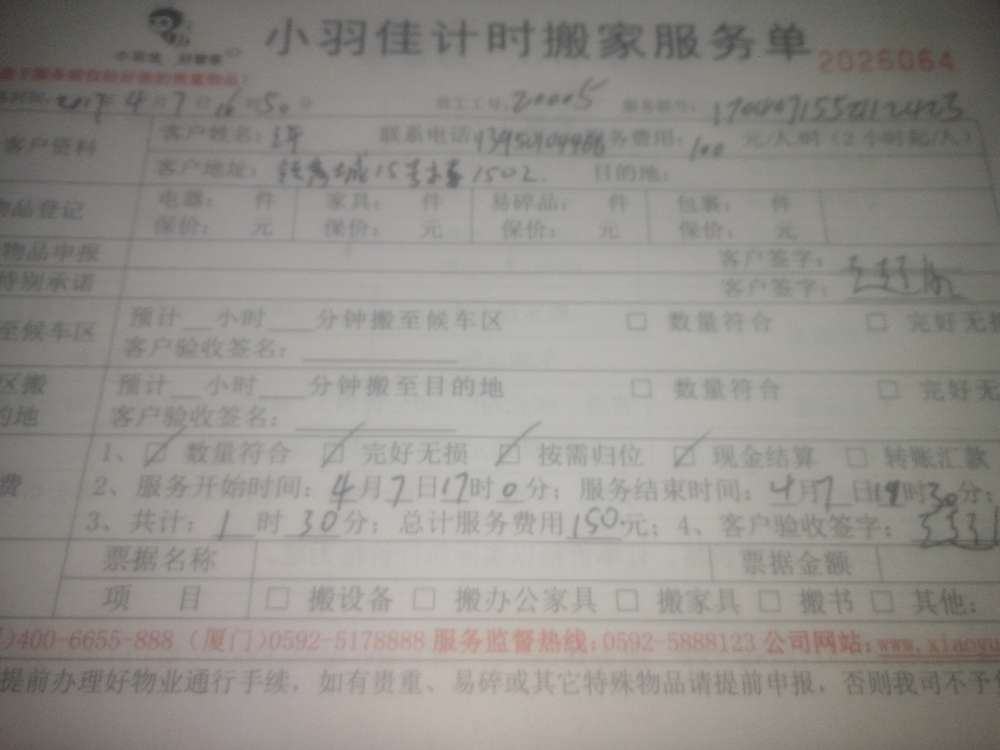 小羽佳 好管家
小羽佳计时搬家服务单
2026064
2017年4月7日16时50分 员工工号:20005 服务账号:
客户资料 客户姓名: 联系电话: 务费用:100元/人/时(2小时起/人)
客户地址: 城15号楼1502. 目的地:
物品登记 电器: 件 家具: 件 易碎品: 件 包裹: 件
保价: 元 保价: 元 保价: 元 保价: 元
物品申报 客户签字:
特别承诺 客户签字:
至候车区 预计__小时___分钟搬至候车区 □ 数量符合 □ 完好无损
客户验收签名:
区搬 预计__小时___分钟搬至目的地 □ 数量符合 □ 完好无
的地 客户验收签名:
1、☑ 数量符合 ☑ 完好无损 ☑ 按需归位 ☑ 现金结算 □ 转账汇款
费 2、服务开始时间:4月7日17时0分;服务结束时间:4月7日19时30分;
3、共计:1时30分;总计服务费用150元;4、客户验收签字:
票据名称 票据金额
项 目 □ 搬设备 □ 搬办公家具 □ 搬家具 □ 搬书 □ 其他:
)400-6655-888 (厦门)0592-5178888 服务监督热线:0592-5888123 公司网站:www.xiaoyu
提前办理好物业通行手续,如有贵重、易碎或其它特殊物品请提前申报,否则我司不予